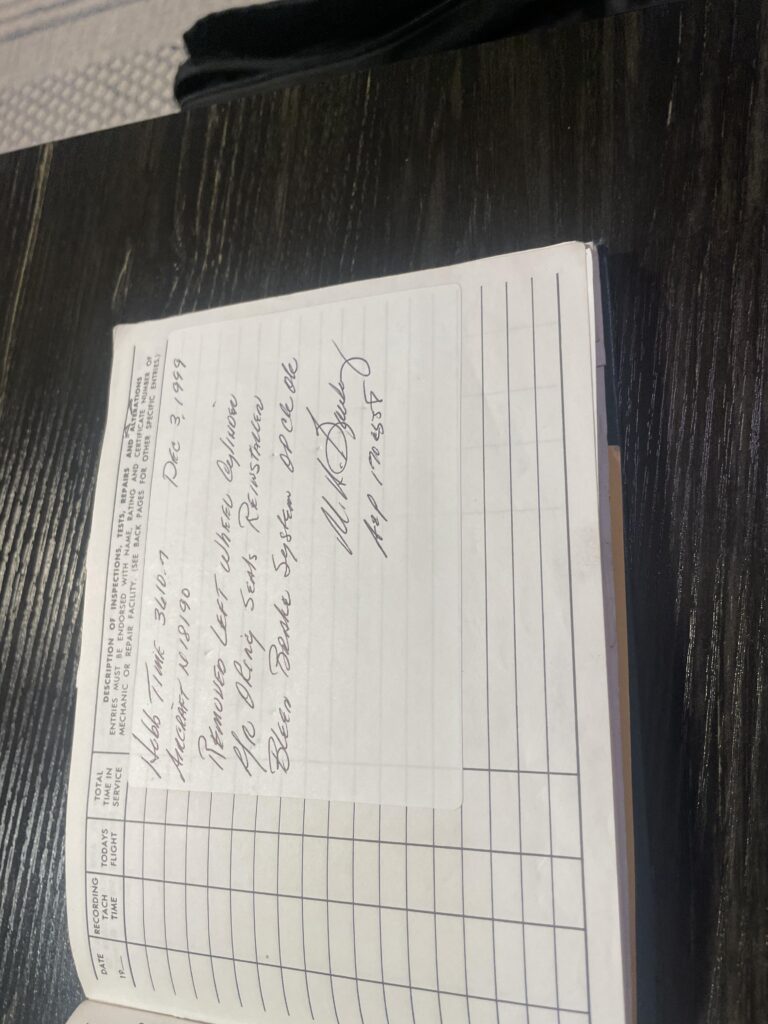 DATE
19—
RECORDING
TACH
TIME
TODAYS
FLIGHT
TOTAL
TIME IN
SERVICE
DESCRIPTION OF INSPECTIONS, TESTS, REPAIRS AND ALTERATIONS
ENTRIES MUST BE ENDORSED WITH NAME, RATING AND CERTIFICATE NUMBER OF
MECHANIC OR REPAIR FACILITY. (SEE BACK PAGES FOR OTHER SPECIFIC ENTRIES.)
Hobb TIME 3610.7 DEC 3, 1999
AIRCRAFT N18190
REMOVED LEFT WHEEL Cylinder
ORing Seals REINSTALLED
Bleed Brake System OP CK OK
A&P